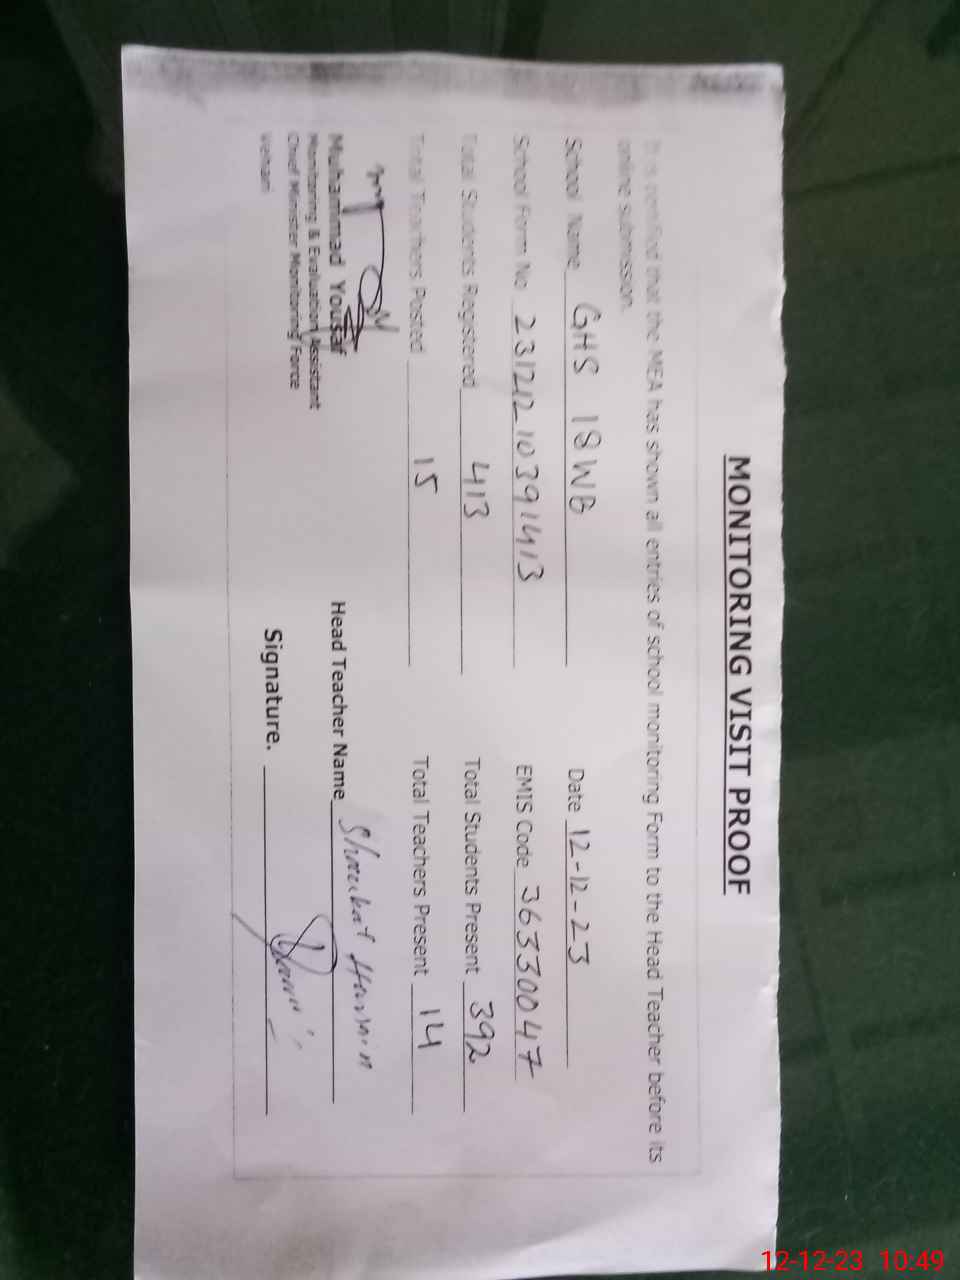 MONITORING VISIT PROOF
It is verified that the MEA has shown all entries of school monitoring Form to the Head Teacher before its
online submission.
School Name GHS 18WB Date 12-12-23
School Form No 23121210391413 EMIS Code 36330047
Total Students Registered 413 Total Students Present 392
Total Teachers Posted 15 Total Teachers Present 14
Muhammad Yousaf
Monitoring & Evaluation Assistant
Chief Minister Monitoring Force
Vehari
Head Teacher Name Shaukat Hussain
Signature.
12-12-23 10:49